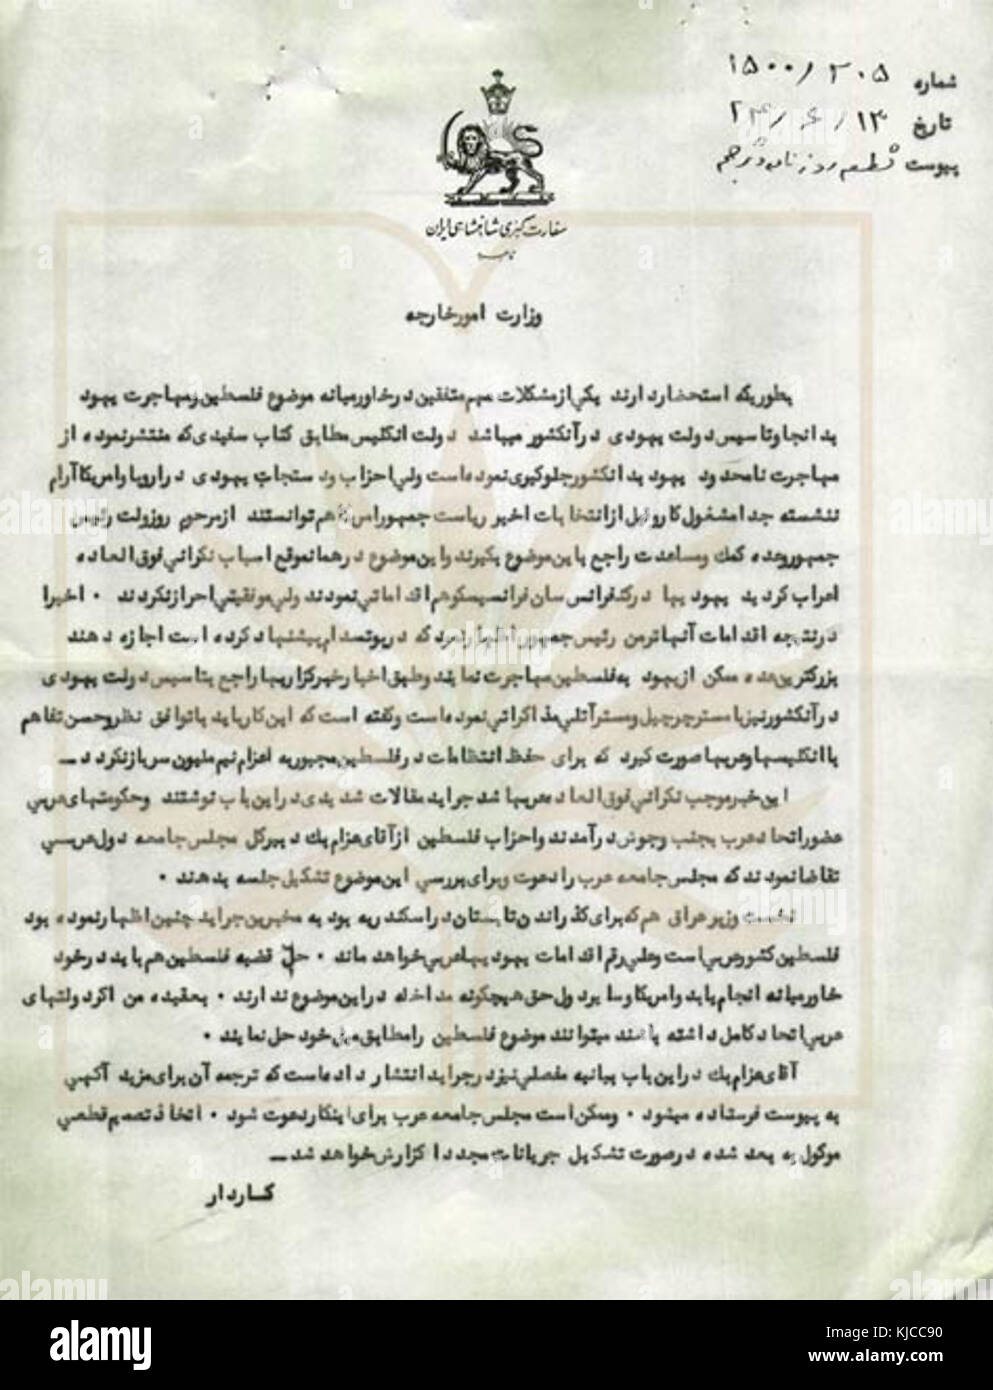 شماره ۱۵۰۰/۲۰۵
تاریخ ۲۴/۶/۱۳
پیوست
سفارت کبری شاهنشاهی ایران
وزارت امورخارجه
بطوریکه استحضار دارند یکی از مشکلات مهم متفقین در خاورمیانه موضوع فلسطین و مهاجرت یهود
بدانجا و تاسیس دولت یهودی در آنکشور میباشد دولت انگلیس مطابق کتاب سفیدی که منتشر نموده از
مهاجرت نامحدود یهود بدانکشور جلوگیری نموده است ولی احزاب و دستجات یهودی در اروپا و امریکا آرام
ننشسته جدا مشغول کار و قبل از انتخابات اخیر ریاست جمهور امریکا هم توانستند از مرحوم روزولت رئیس
جمهور وعده کمک و مساعدت راجع باین موضوع بگیرند و این موضوع در همانموقع اسباب نگرانی فوق العاده
اعراب گردید یهودیها در کنفرانس سان فرانسیسکو هم اقداماتی نمودند ولی موفقیتی احراز نکردند ۰ اخیرا
در نتیجه اقدامات آنها ترمن رئیس جمهور امریکا اظهار نمود که در پوتسدام پیشنهاد کرده است اجازه دهند
بزرگترین عده ممکن از یهود به فلسطین مهاجرت نمایند و طبق اخبار خبرگزاریها راجع بتاسیس دولت یهودی
در آنکشور نیز با مستر چرچیل و مستر آتلی مذاکراتی نموده است و گفته است که این کار باید با توافق نظر و حسن تفاهم
با انگلیسها و عربها صورت گیرد که برای حفظ انتظامات در فلسطین مجبور به اعزام نیم ملیون سرباز نگردد ـ
این خبر موجب نگرانی فوق العاده عربها شد جراید مقالات شدیدی در این باب نوشتند و حکومتهای عربی
عضو اتحاد عرب بجنب و جوش در آمدند و احزاب فلسطین از آقای عزام بك دبیر کل مجلس جامعه دول عربی
تقاضا نمودند که مجلس جامعه عرب را دعوت و برای بررسی این موضوع تشکیل جلسه بدهند ۰
نخست وزیر عراق هم که برای گذراندن تابستان در اسکندریه بود به مخبرین جراید چنین اظهار نموده بود
فلسطین کشور عربی است و علی رغم اقدامات یهودیها عربی خواهد ماند ۰ حل قضیه فلسطین هم باید در خود
خاورمیانه انجام یابد و امریکا و سایر دول حق هیچگونه مداخله در این موضوع ندارند ۰ بعقیده من اگر دولتهای
عربی اتحاد کامل داشته باشند میتوانند موضوع فلسطین را مطابق میل خود حل نمایند ۰
آقای عزام بك در این باب بیانیه مفصلی نیز در جراید انتشار داده است که ترجمه آن برای مزید آگهی
به پیوست فرستاده میشود ۰ و ممکن است مجلس جامعه عرب برای اینکار دعوت شود ۰ اتخاذ تصمیم قطعی
موکول به بعد شده در صورت تشکیل جریانات مجددا گزارش خواهد شد ـ
کاردار
alamy
Image ID: KJCC90
www.alamy.com